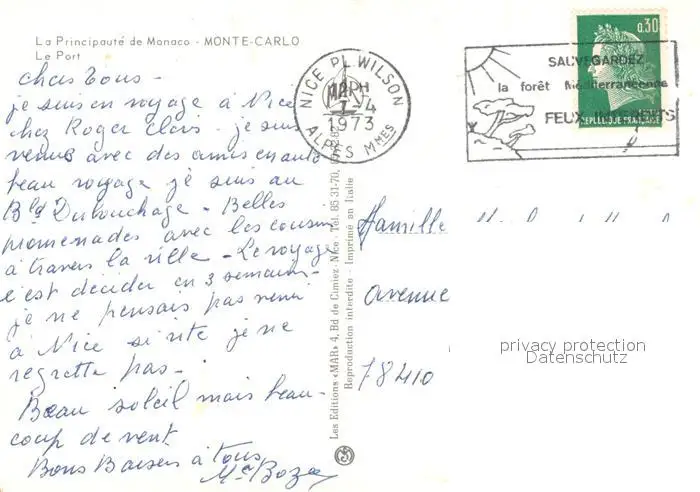 La Principauté de Monaco - MONTE-CARLO
Le Port
chers tous -
je suis en voyage à Nice
chez Roger Clers - je suis
venus avec des amis en auto
beau voyage je suis au
Bld Dubouchage - Belles
promenades avec les cousins
à travers la ville - Le voyage
c'est décider en 3 semaines -
je ne pensais pas venir
à Nice si vite je ne
regrette pas -
Beau soleil mais beau-
coup de vent.
Bons Baisers à tous
NICE PL. WILSON
12H
7-4
1973
ALPES Mmes
SAUVEGARDEZ
la forêt Méditerranéenne
FEUX INTERDITS
0,30
REPUBLIQUE FRANÇAISE
Les Editions «MAR» 4, Bd de Cimiez - Nice - Tél. 85 31-70,
Reproduction interdite - Imprimé en Italie
Famille
Avenue
78410
privacy protection
Datenschutz